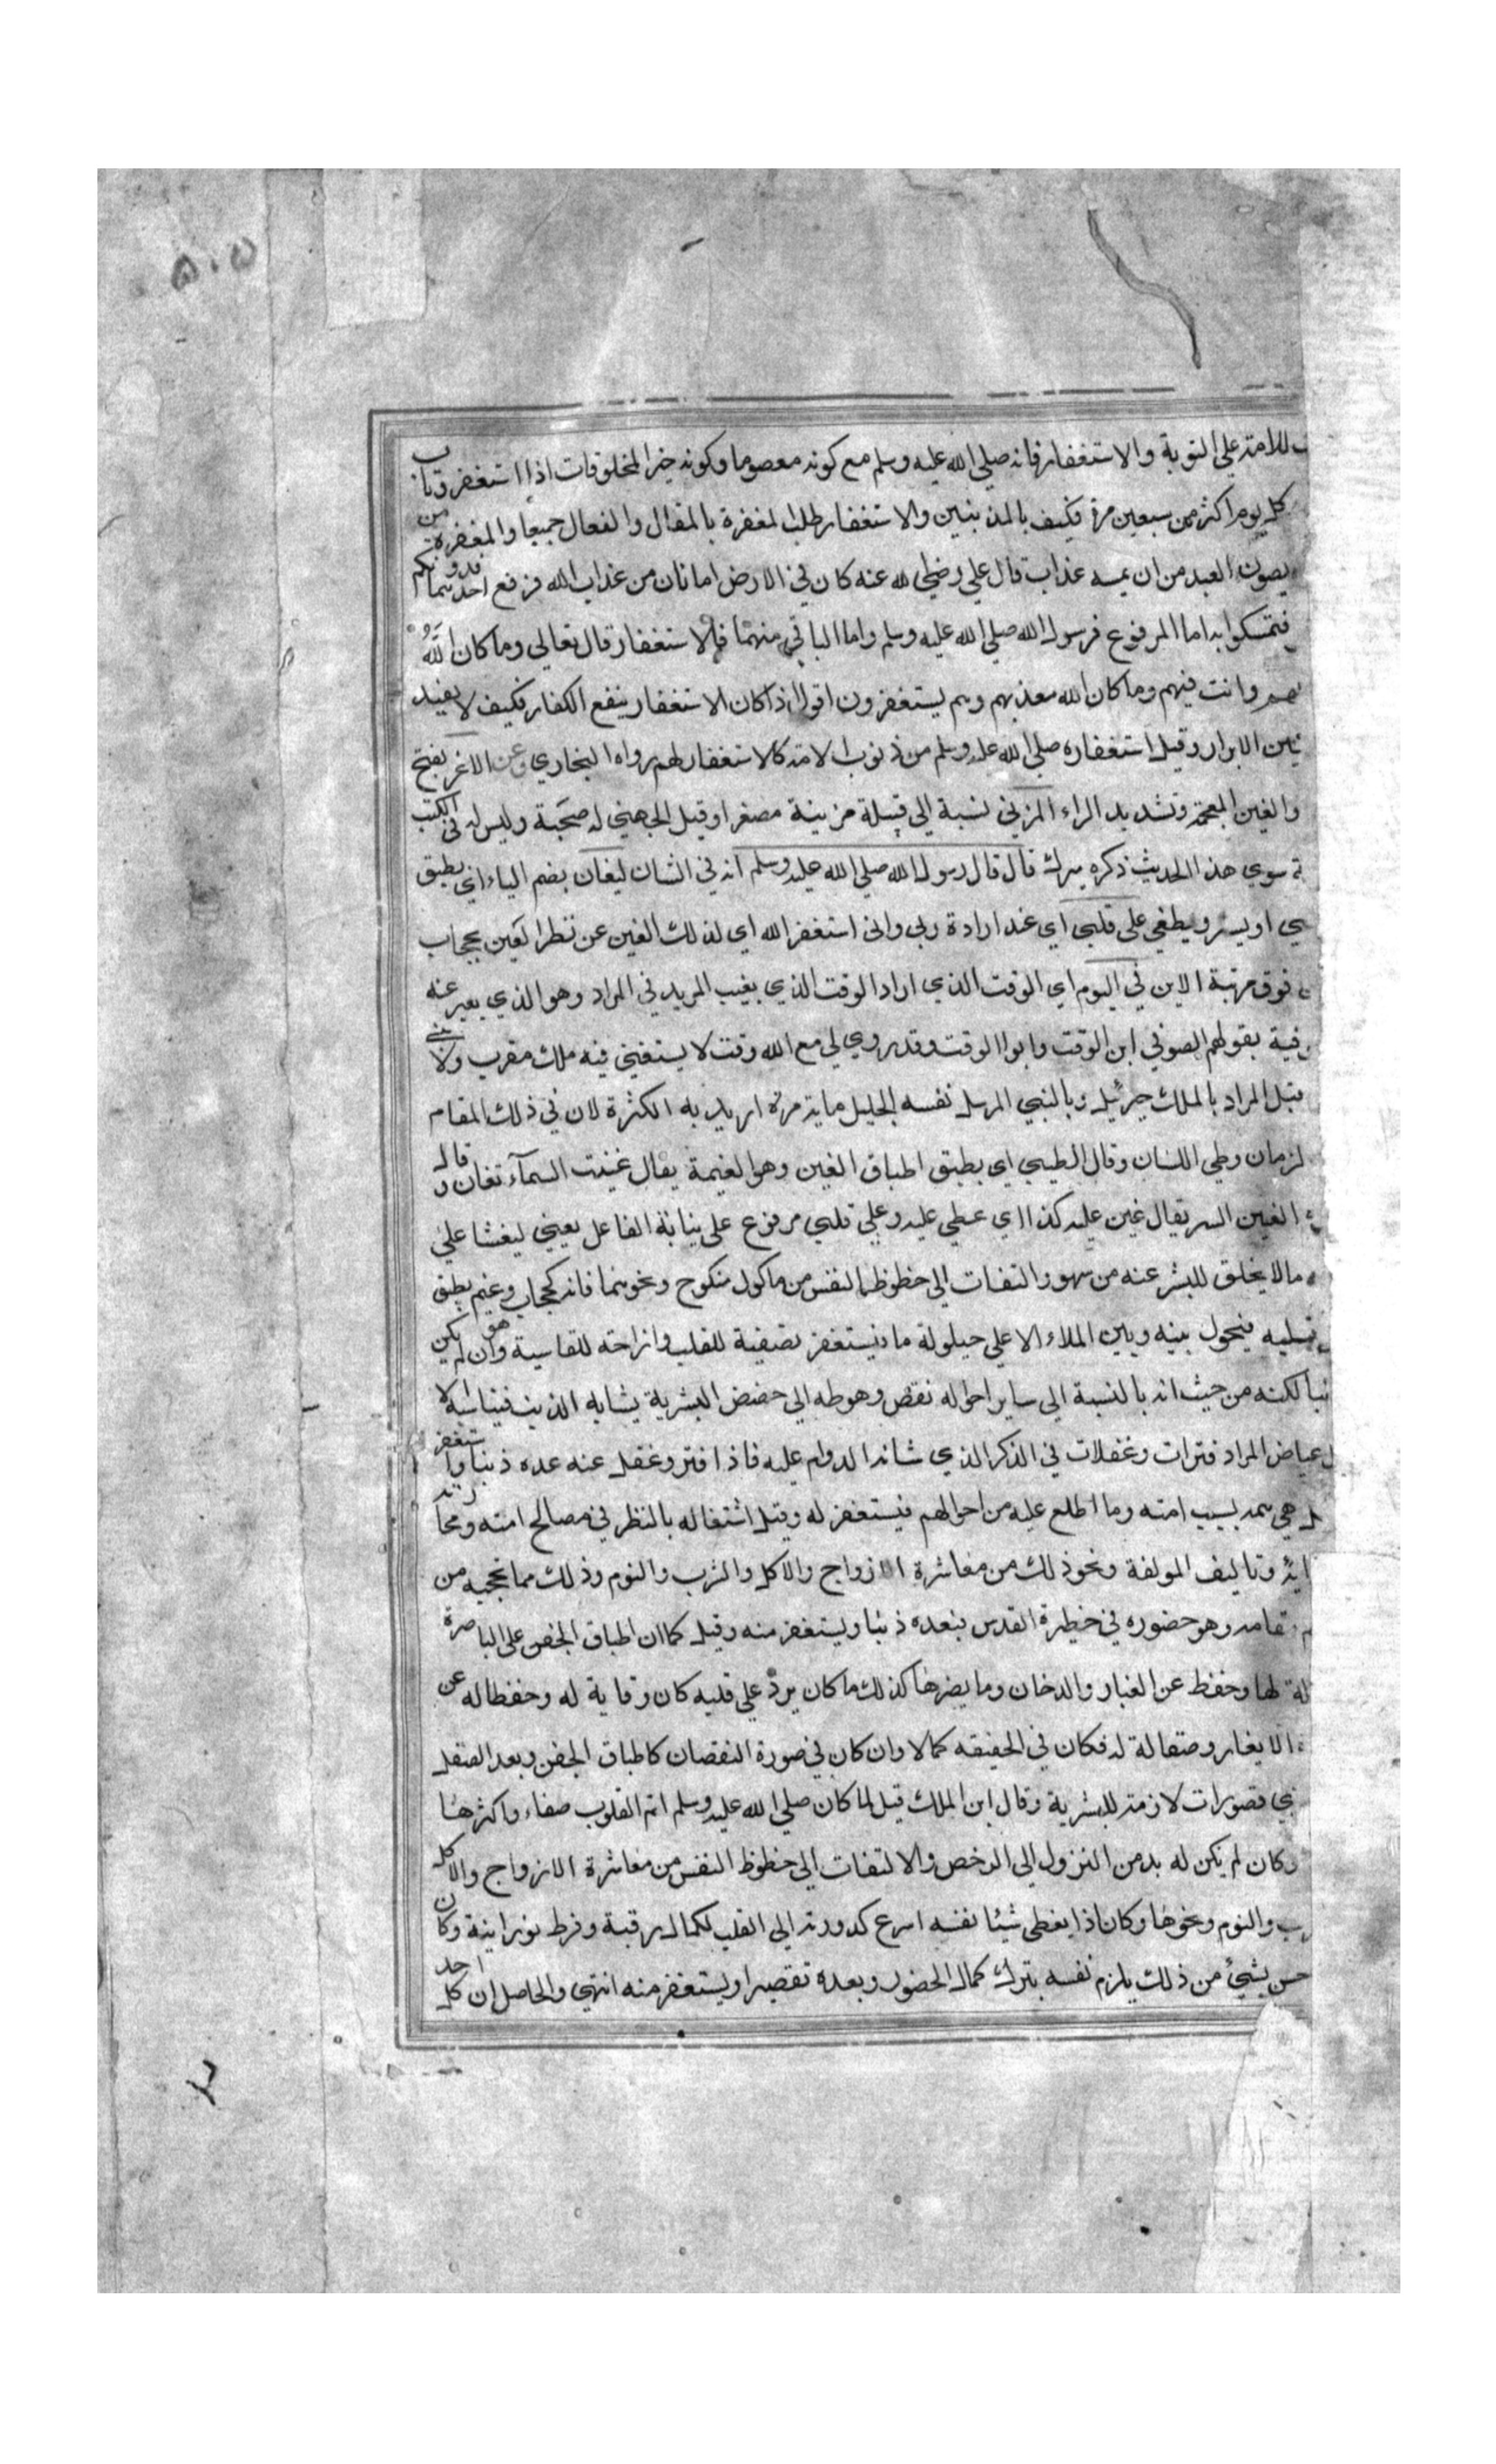 ٥٠٥
للامة على التوبة والاستغفار فانه صلي الله عليه وسلم مع كونه معصوما وكونه خير المخلوقات اذا استغفر وتاب
كل يوم اكثر من سبعين مرة فكيف بالمذنبين والاستغفار طلب المغفرة بالمقال والفعال جميعا والمغفرة من
يصون العبد من ان يمسه عذاب قال علي رضي الله عنه كان في الارض امانان من عذاب الله فرفع احدهما فدونكم
فتمسكوا به اما المرفوع فرسول الله صلي الله عليه وسلم واما الباقي منهما فالاستغفار قال تعالي وما كان اللّٰه
وانت فيهم وما كان الله معذبهم وهم يستغفرون اقول اذا كان الاستغفار ينفع الكفار فكيف لا يفيد
الابرار وقيل استغفاره صلي الله عليه وسلم من ذنوب الامة كالاستغفار لهم رواه البخاري وعن الاغر بفتح
والغين المعجمة وتشديد الراء المزني نسبة الي قبيلة مزينة مصغرا وقيل الجهني له صحبة وليس له في الكتب
سوي هذا الحديث ذكره ميرك قال قال رسول الله صلي الله عليه وسلم انه في الشان ليغان بضم الياء اي يطبق
او يستر ويطغي على قلبي اي عند ارادة ربي واني استغفر الله اي لذلك الغين عن نظر العين بحجاب
فوق مرتبة الاين في اليوم اي الوقت الذي اراد الوقت الذي يغيب المريد في المراد وهو الذي يعبر عنه
بقولهم الصوفي ابن الوقت وابوا الوقت وقد روي لي مع الله وقت لا يستغني فيه ملك مقرب ولا نبي
قبل المراد بالملك جبرئيل وبالنبي المرسل نفسه الجليل ماية مرة اريد به الكثرة لان في ذلك المقام
وطي اللسان وقال الطيبي اي يطبق اطباق الغين وهو الغيمة يقال غينت السمآء تغان وقال
الغين الستر يقال غين عليه كذا اي غطي عليه وعلي قلبي مرفوع على نيابة الفاعل يعني ليغشا علي
مالا يخلق للبشر عنه من سهو والتفات الي حظوظ النفس من ماكول منكوح ونحوهما فانه كحجاب وغيم يطبق
فيحول بينه وبين الملاء الاعلي حيلولة ما فيستغفر تصفية للقلب وازاحته للقاسية وهو ان لم يكن
لكنه من حيث انه بالنسبة الي ساير احواله نقص وهوطه الي حضض البشرية يشابه الذنب فيناسبه الا
عياض المراد فترات وغفلات في الذكر الذي شانه الدوام عليه فاذا فتر وغفل عنه عده ذنبا واستغفر
هي همه بسبب امته وما اطلع عليه من احوالهم فيستغفر له وقيل اشتغاله بالنظر في مصالح امته ومحاربة
وتاليف المولفة ونحو ذلك من معاشرة الازواج والاكل والشرب والنوم وذلك مما يحجبه من
مقامه وهو حضوره في حظيرة القدس بنعده ذنبا ويستغفر منه وقيل كما ان اطباق الجفن على الباصرة
لها وحفظ عن الغبار والدخان وما يضرها كذلك ما كان يردّ على قلبه كان وقاية له وحفظا له عن
الايغار وصقالة له فكان في الحقيقه كمالا وان كان في صورة النقصان كاطباق الجفن وبعد الصقل
قصورات لازمة للبشرية وقال ابن الملك قيل لما كان صلي الله عليه وسلم اتم القلوب صفاء واكثرها
وكان لم يكن له بد من النزول الي الرخص والالتفات الي حظوظ النفس من معاشرة الازواج والاكل
والنوم ونحوها وكان اذا يغطى شيئا نفسه اسرع كدورته الي القلب لكمال رقبة وفرط نورانية وكان
بشيء من ذلك يلزم نفسه بترك كمال الحضور وبعده تقصيرا ويستغفر منه انتهي والحاصل ان كل احد